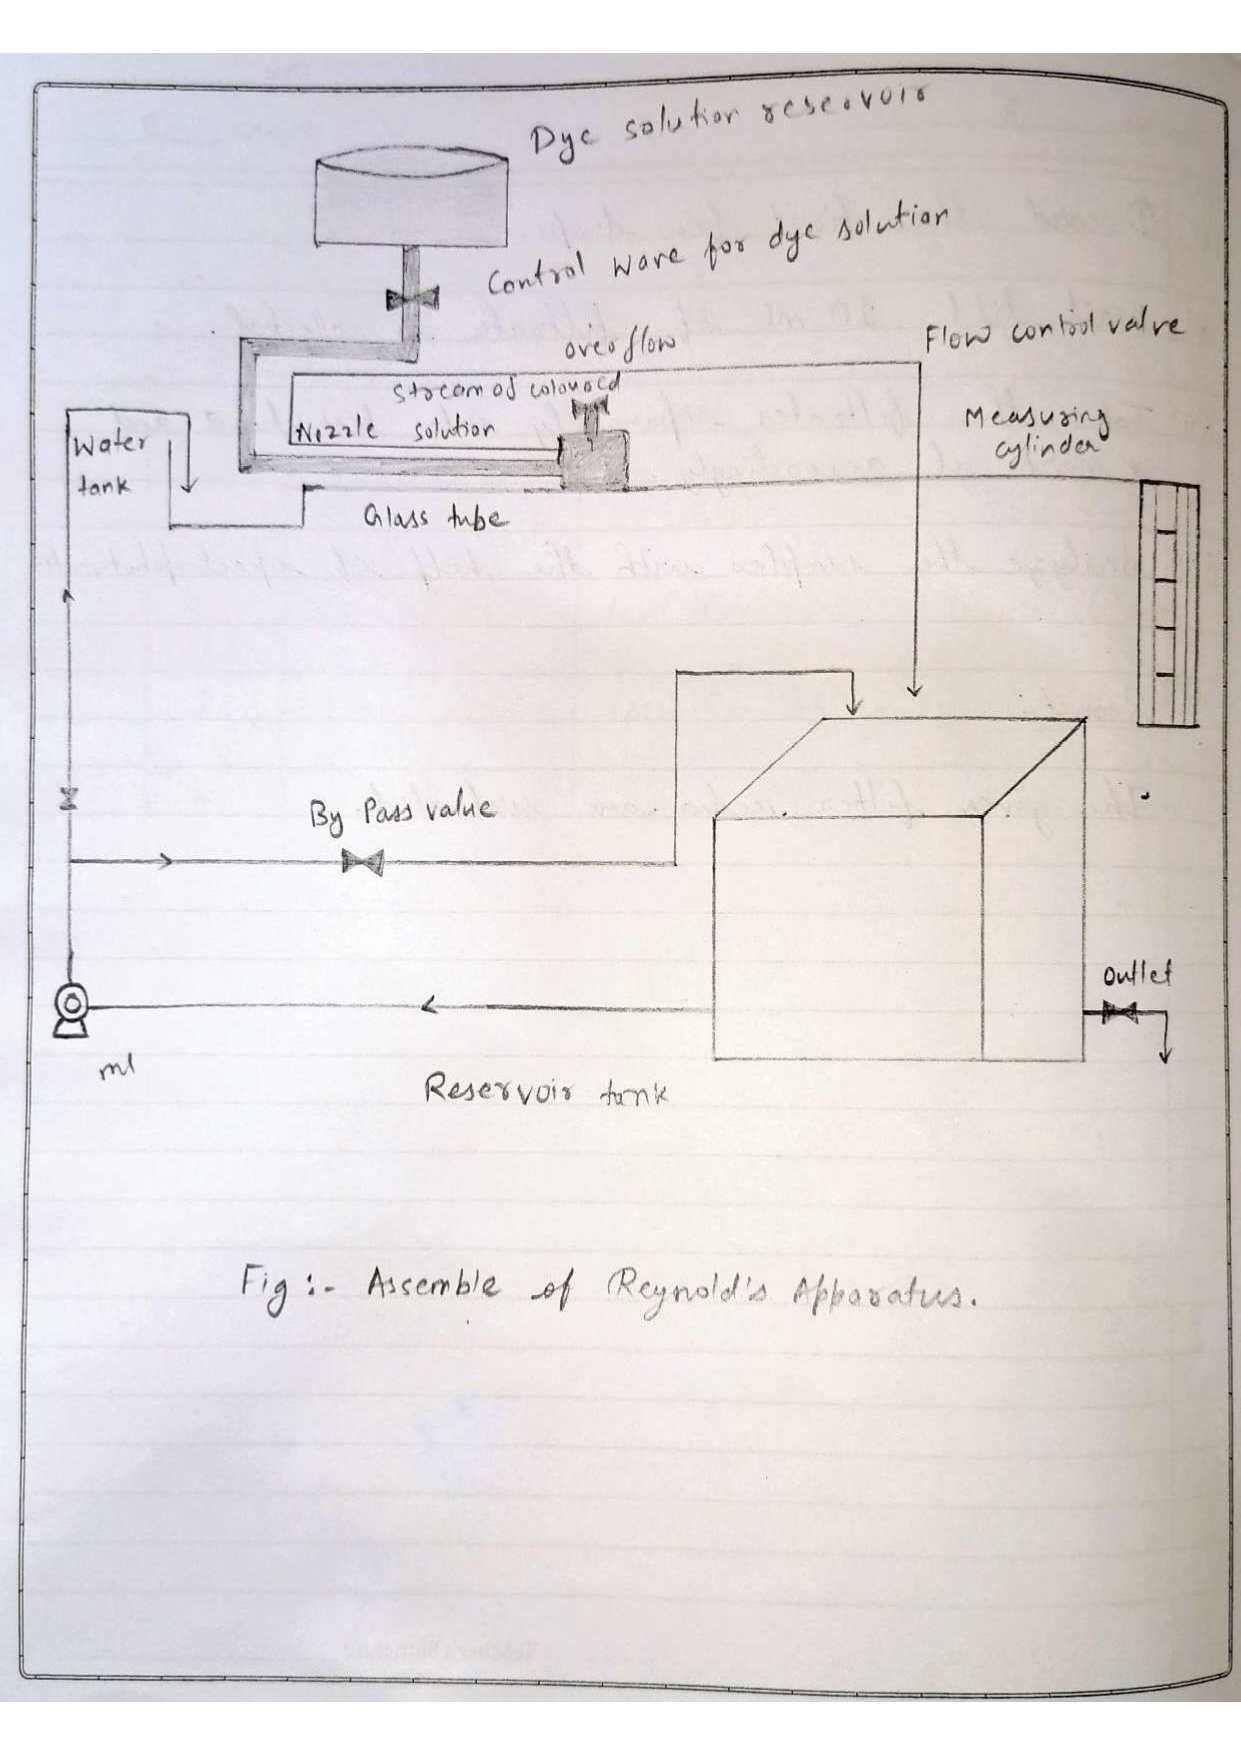 Dye solution reservoir
Control wave for dye solution
overflow
Flow control valve
stream of coloured
Nozzle solution
Measuring
cylinder
Water
tank
Glass tube
By Pass value
outlet
ml
Reservoir tank
Fig :- Assemble of Reynold's Apparatus.